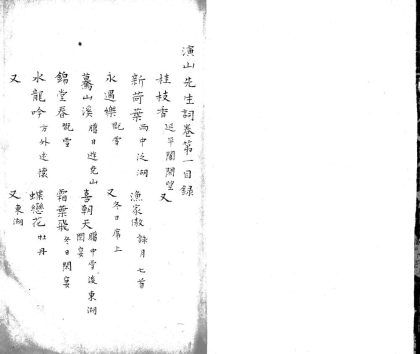 演山先生詞卷第一目録
桂枝香 延平閣閑望 又
新荷葉 雨中泛湖 漁家傲 詠月 七首
永遇樂 玩雪 又 冬日席上
驀山溪 臘日遊堯山 喜朝天 臘中雪後東湖閑宴
錦堂春 玩雪 霜葉飛 冬日閑宴
水龍吟 方外述懷 蝶戀花 牡丹
又 又 東湖